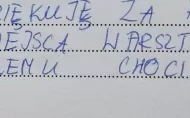 IĘKUJĘ ZA
EJSCA WARSZT
LEMU CHOCI